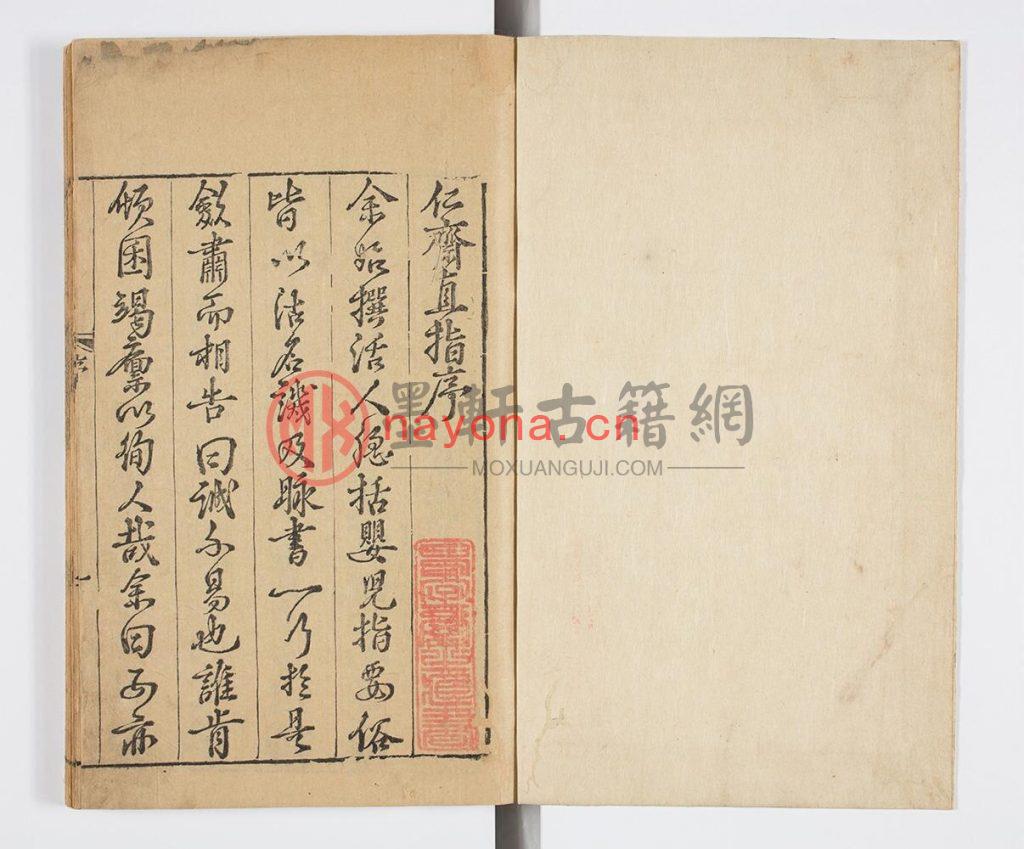 仁齋直指序
余始撰活人總括嬰児指要俗
皆以沽名譏及脉書一乃於是
斂肅而相告曰誠不易也誰肯
傾囷竭廪以狥人哉余曰子亦
一
墨軒古籍網
nayona.cn
MOXUANGUJI.COM